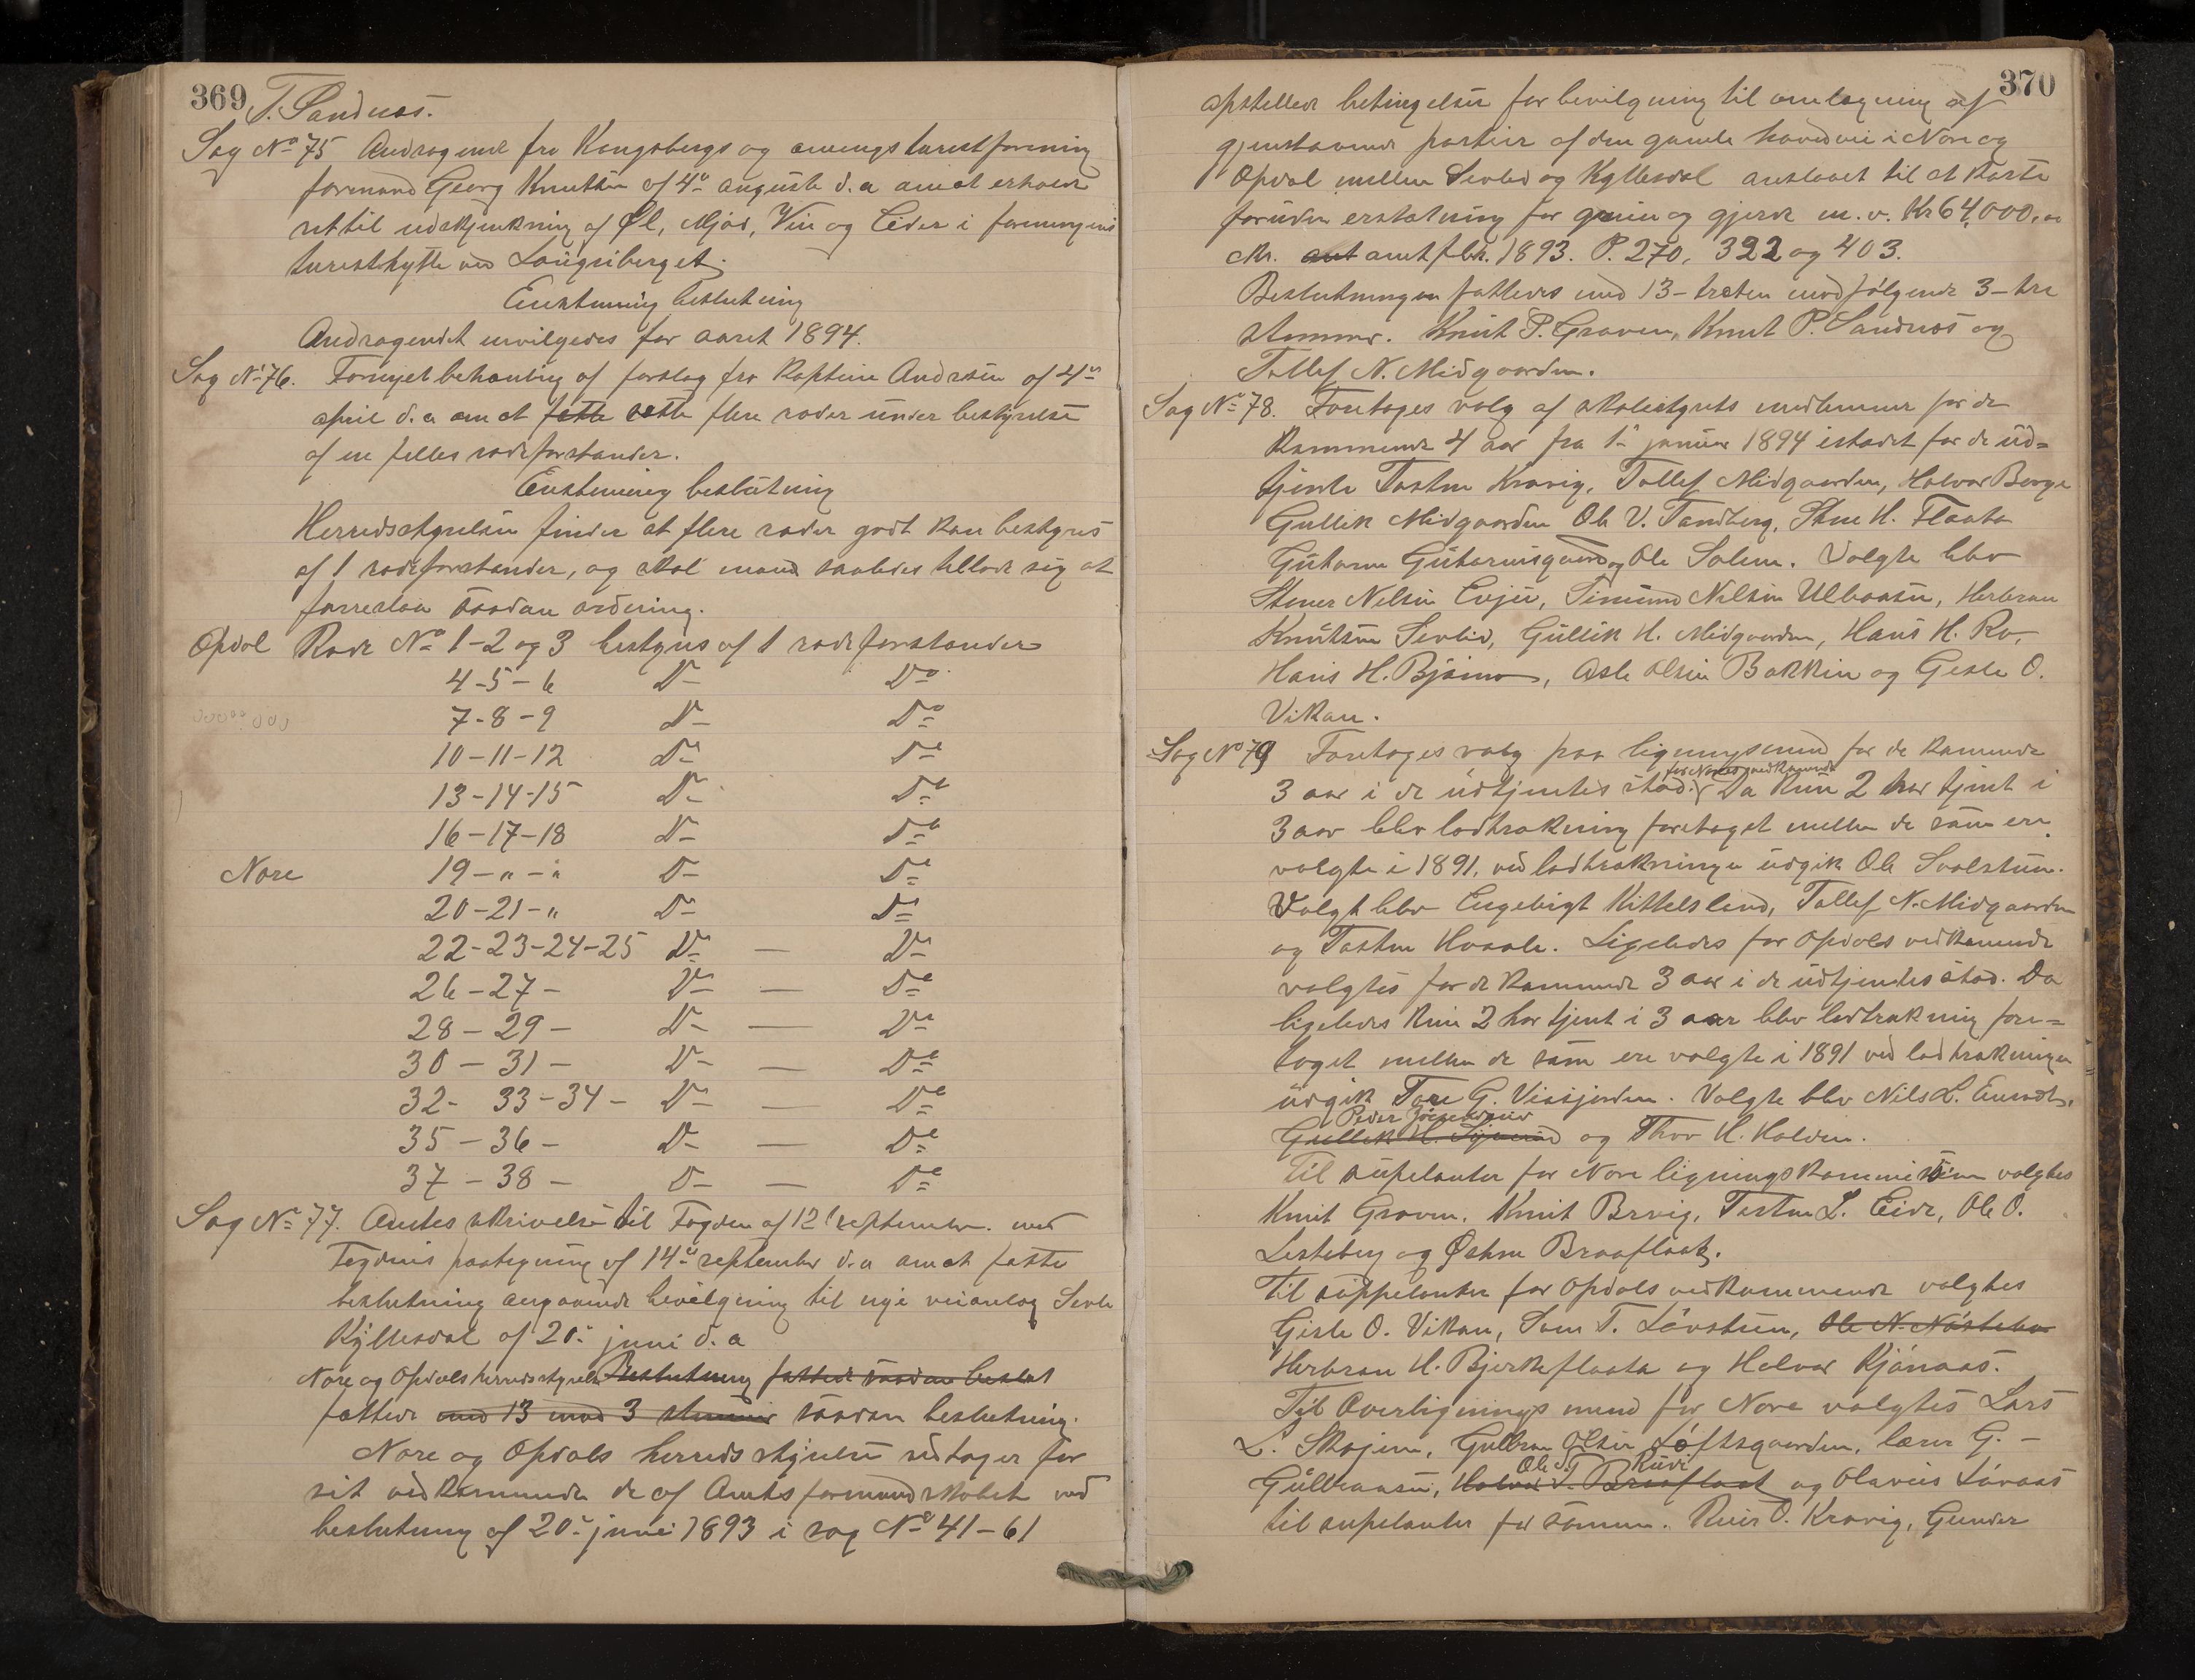 369 T. Sandnæs.
Sag No 75 Andragende fra Kongsbergs og omegns turistforening
formand Georg Knutsen af 4de auguste d.a om at erholde
ret til udskjenkning af Øl, Mjød, Vin og Cider i foreningens
turisthytte ved
Enstemmig beslutning
Andragendet innvilgedes for aaret 1894.
Sag No 76. Fornyet behanling af forslag fra Kaptein Andresen af 4de
april d.a om at fette sette flere roder under bestyrelse
af en felles rodeforstander.
Enstemmig beslutning
Herredsstyrelsen finder at flere roder godt kan bestyres
af 1 rodeforstander, og skal mand saaledes tillade sig at
forreslaa saadan ordening.
Opdal Rode No 1-2 og 3 bestyres af 1 rodeforstander
4-5-6 Do Do
7-8-9 Do Do
10-11-12 Do Do
13-14-15 Do Do
16-17-18 Do Do
Nore 19-"-" Do Do
20-21-" Do Do
22-23-24-25 Do — Do
26-27- Do — Do
28-29- Do — Do
30-31- Do — Do
32- 33-34- Do — Do
35-36- Do — Do
37-38- Do — Do
Sag No 77. Amtes skrivelse til Fogden af 12te september med
Fogdens paategning af 14de september d.a om at fatte
beslutning angaaende bevilgning til nye veianlæg Sevle
Kyllesdal af 20de juni d.a
Nore og Opdals herredsstyrelse Beslutning fattede saadan beslut
fattede med 13 mod 3 stemmer saadan beslutning.
Nore og Opdals herredsstyrelse vedtager for
sit vedkommende de af Amtsformandskabet ved
beslutning af 20de juni 1893 i sag No 41-61
370
opstillede betingelser for bevilgning til omlægning af
gjenstaaende partier af den gamle hovedvei i Nore og
Opdal mellem Sevleid og Kyllesdal anslaaet til at koste
foruden erstatning for grun og gjerde m.v. Kr 64,000,00
ckr. amt amtsfbh. 1893. P. 270, 322 og 403.
Beslutningen fattedes med 13-tretten mod følgende 3-tre
stemmer. Knut P. Graven, Knut P. Sandnæs og
Tollef N. Midgaarden.
Sag No 78. Foretages valg af skolestyrets medlemmer for de
kommende 4 aar fra 1de januar 1894 istedet for de ud-
tjente Tosten Kravig, Tollef Midgaarden, Halvor Berge
Gullik Midgaarden Ole V. Tandberg, Sten H. Flaata
Gutorm Gutormsgaard og Ole Solem. Valgte blev
Stener Nilsen Evju, Simund Nilsen Ulbaasen, Herbran
Knutsen Sevleid, Gullik H. Midgaarden, Hans H. Ro,
Hans H. Bjømo, Asle Olsen Bakken og Gisle O.
Vikan.
Sag No 79 Foretages valg paa ligningsmend for de kommende
for Nores vedkommende
3 aar i de udtjentes sted. Da kun 2 har tjent i
3 aar blev lodtrækning foretaget mellem de som ere
valgte i 1891, ved lodtrækningen udgik Ole Svalstuen.
Valgt blev Engebrigt Kittelsland, Tollef N. Midgaarden
og Tosten Hvaale. Ligeledes for Opdals vedkommende
valgtes for de kommende 3 aar i de udtjentes sted. Da
ligeledes kun 2 har tjent i 3 aar blev lodtrækning fore-
taget mellem de som ere valgte i 1891 ved lodtrækningen
udgik Tore G. Valgte blev Nils L.
Peder
Gullik H. og Thov H. Halden.
Til supelanter for Nore ligningskommission valgtes
Knut Graven, Knut Brvig, Tosten L. Eide, Ole O.
Lesteberg og Østen Braaflaat.
Til suppelanter for Opdals vedkommende valgtes
Gisle O. Vikan, Som T. Løvstuen, Ole N. Nørstebø
Herbran H. Bjerkeflaata og Halvor Kjønaas.
Til Overligningsmend for Nore valgtes Lars
L. Skojen, Gulbran Olsen Løftsgaarden, lærer G. -
Ole T. Ruud
Gulbransen, Halvor T. Braaflaat og Olavus Løvaas
til supelanter for samme. Knut O. Kravig, Gunder